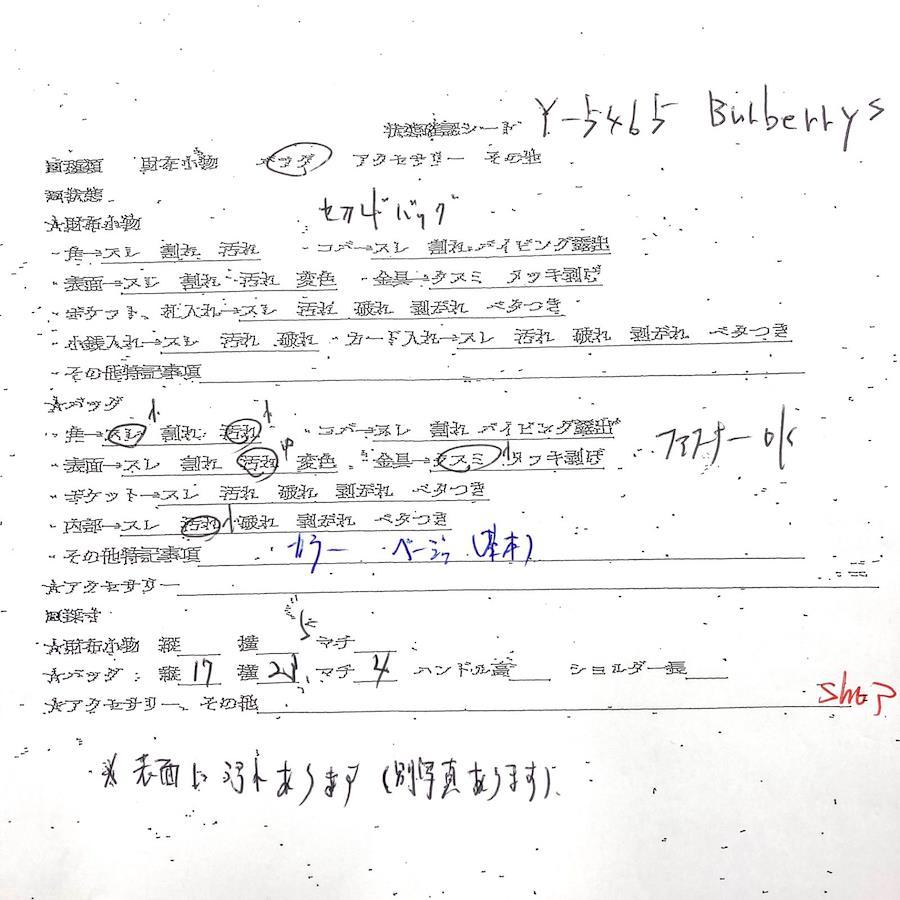 状態確認シート Y-5465 Burberrys
□種類 財布小物 バッグ アクセサリー その他
□状態
セカンドバッグ
☆財布小物
・角→スレ 割れ 汚れ ・コバ→スレ 割れ パイピング露出
・表面→スレ 割れ 汚れ 変色 ・金具→クスミ メッキ剥げ
・ポケット、札入れ→スレ 汚れ 破れ 剥がれ ベタつき
・小銭入れ→スレ 汚れ 破れ ・カード入れ→スレ 汚れ 破れ 剥がれ ベタつき
・その他特記事項
☆バッグ
・角→スレ 小 割れ 汚れ 小 ・コバ→スレ 割れ パイピング露出
・表面→スレ 割れ 汚れ 中 変色 ・金具→クスミ 小 メッキ剥げ ファスナー OK
・ポケット→スレ 汚れ 破れ 剥がれ ベタつき
・内部→スレ 汚れ 小 破れ 剥がれ ベタつき
・その他特記事項 カラー ベージュ(基本)
☆アクセサリー
□採寸
☆財布小物 縦 横 マチ
☆バッグ:縦 17 横 マチ 4 ハンドル高 ショルダー長
☆アクセサリー、その他
shop
※表面に汚れあります(別写真あります)